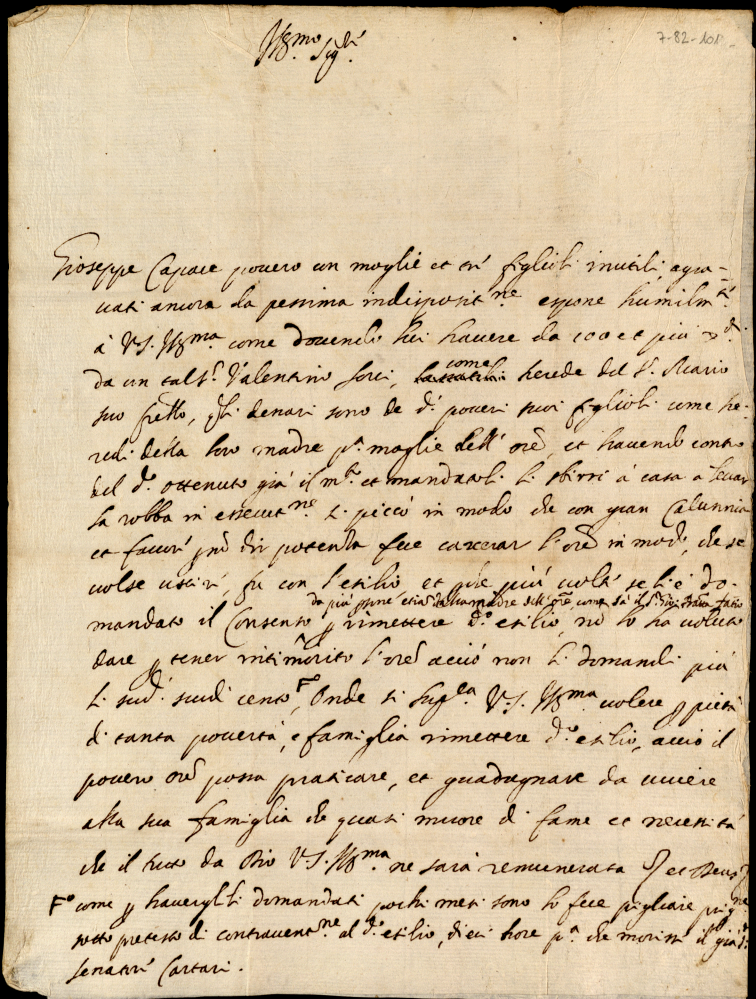 Ill.mo Sig.re
7-82-101
Gioseppe Capace povero con moglie et trè figlioli inutili, agra-
vati ancora da pessima indisposit.ne espone humilm.te
à V.S. Ill.ma come dovendo lui havere da 100 et più
da un tal S.r Valentino Sorci, come herede del S.r Mario
suo frello, denari sono de d.i poveri suoi figlioli come he-
redi della loro madre p.a moglie dell' ore, et havendo contro
del d.o ottenuto già il m.to et mandatoli li sbirri à casa a levar
la robba in essecut.ne si piccò in modo che con gran Calunnia
et favori potenza fece carcerar l'ore in modo, che se
volse uscire, fu con l'esilio et più volte se li è do-
da più persone madre dell' ore, come sà il
mandato il Consenso p rimettere d.o esilio, nò lo ha voluto
dare p tener intimorito l'ore acciò non li domandi più
li sud.i scudi cento F.o, Onde si supp.ca V.S. Ill.ma volere p pietà
di tanta povertà, e famiglia rimettere d.o esilio, acciò il
povero ore possa praticare, et guadagnare da vivere
alla sua famiglia che quasi more di fame et necessità
che il tutto da Dio V.S. Ill.ma ne sarà remunerata et Deus
F.o come p haverglili domandati pochi mesi sono lo fece pigliare prig.ne
sotto pretesto di contravent.ne al d.o esilio, dieci hore p.a che morisse il già
Senatore Cartari.